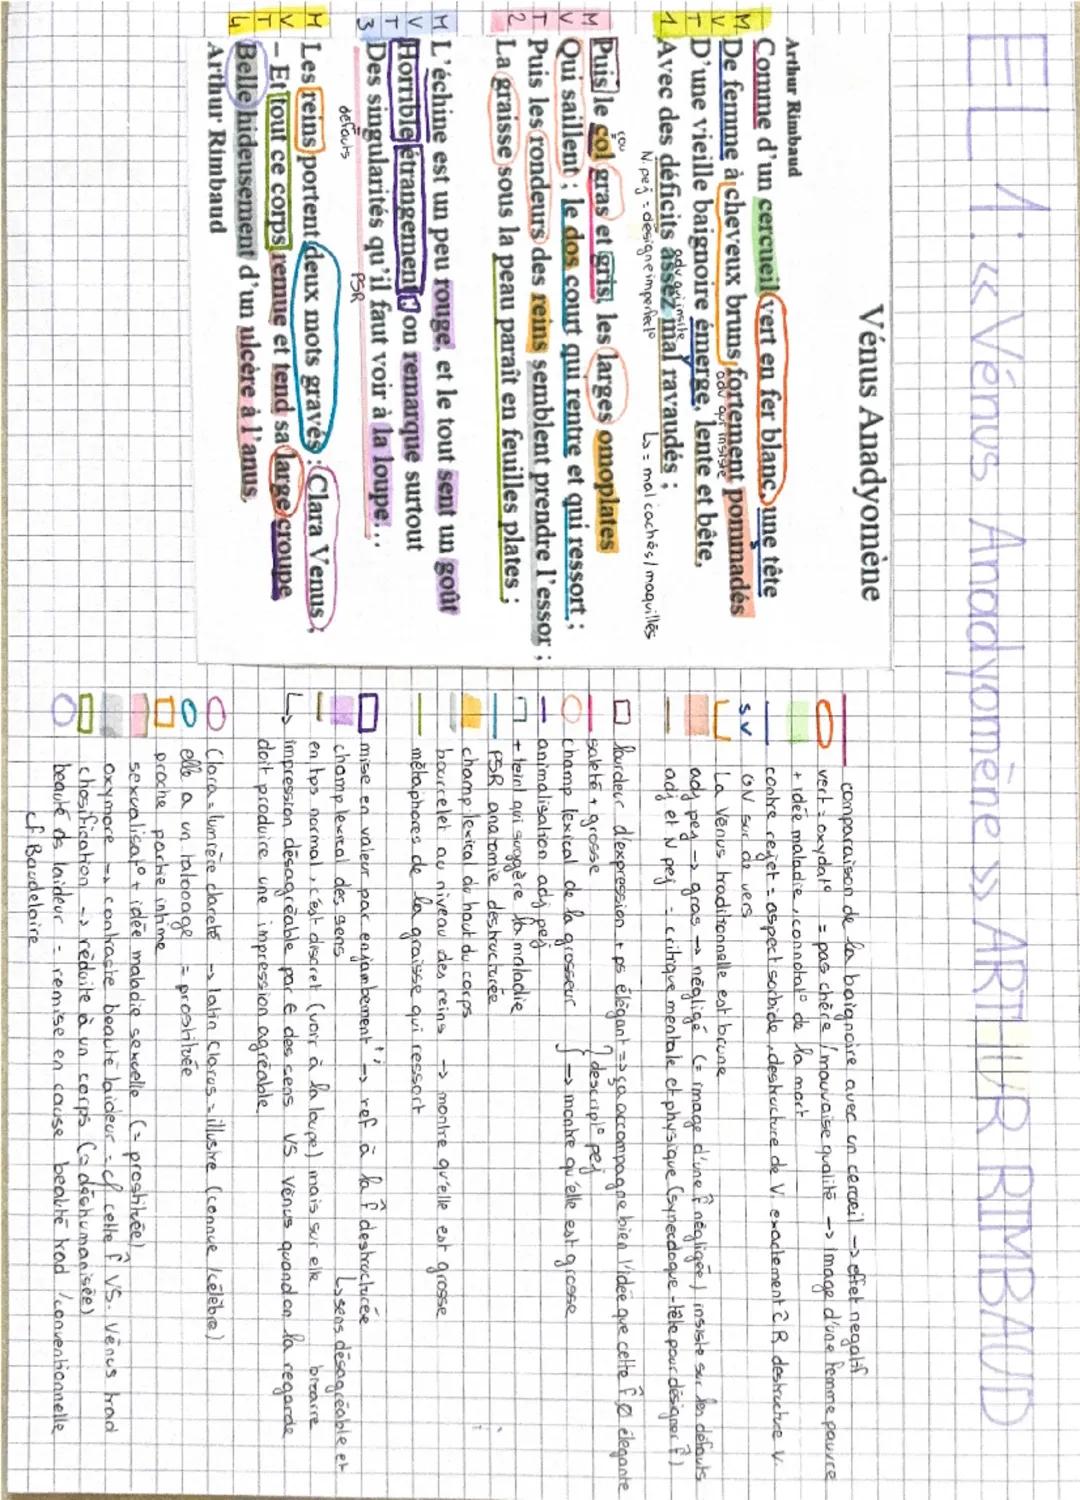 EL 1: « Vénus Anadyomène » ARTHUR RIMBAUD
Vénus Anadyomène
Arthur Rimbaud
Comme d'un cercueil vert en fer blanc, une tête
M De femme à cheveux bruns fortement pommadés
adv qui insiste
V D'une vieille baignoire émerge, lente et bête,
T adv qui insiste
1 Avec des déficits assez mal ravaudés ;
N. pej = désigne imperfect° ↳ = mal cachés / maquillés
cou
M Puis le col gras et gris, les larges omoplates
V Qui saillent ; le dos court qui rentre et qui ressort ;
T Puis les rondeurs des reins semblent prendre l'essor ;
2 La graisse sous la peau paraît en feuilles plates ;
M L'échine est un peu rouge, et le tout sent un goût
V Horrible étrangement ; on remarque surtout
T
3 Des singularités qu'il faut voir à la loupe...
défauts PSR
M Les reins portent deux mots gravés : Clara Venus ;
V - Et tout ce corps remue et tend sa large croupe
T
4 Belle hideusement d'un ulcère à l'anus.
Arthur Rimbaud
comparaison de la baignoire avec un cercueil → effet negatif
vert = oxydat° = pas chère / mauvaise qualité → image d'une femme pauvre
+ idée maladie, connotat° de la mort
contre rejet = aspect sorbide, destructure de V. exactement c̑ R destructure V.
S V GV sur de vers
La Vénus traditionnelle est brune
adj pej → gras → négligé (= image d'une f̂ négligée) insiste sur les défauts
adj et N pej = critique mentale et physique (synecdoque - tête pour désigner f̂)
lourdeur d'expression + ps élégant => ça accompagne bien l'idée que cette f̂ Ø élégante
saleté + grosse } descript° pej
champ lexical de la grosseur } → montre qu'elle est grosse
animalisation adj pej
+ teint qui suggère la maladie
PSR anatomie destructurée
champ lexical du haut du corps
bourrelet au niveau des reins → montre qu'elle est grosse
métaphores de la graisse qui ressort
mise en valeur par enjambement → ref à la f̂ destructurée
champ lexical des sens ↳ sens désagréable et
en tps normal, c'est discret (voir à la loupe) mais sur elle bizarre
↳ impression désagréable par e des sens VS Vénus quand on la regarde
doit produire une impression agréable.
Clara = lumière clareté → latin Clarus = illustre (connue / célèbre)
elle a un tatouage = prostituée
proche partie intime
sexualisat° + idée maladie sexuelle (= prostituée)
oxymore → contraste beauté laideur = cf cette f̂ VS. Vénus trad
chosification → réduite à un corps (= déshumanisée)
beauté ds laideur = remise en cause beauté trad / conventionnelle
cf. Baudelaire